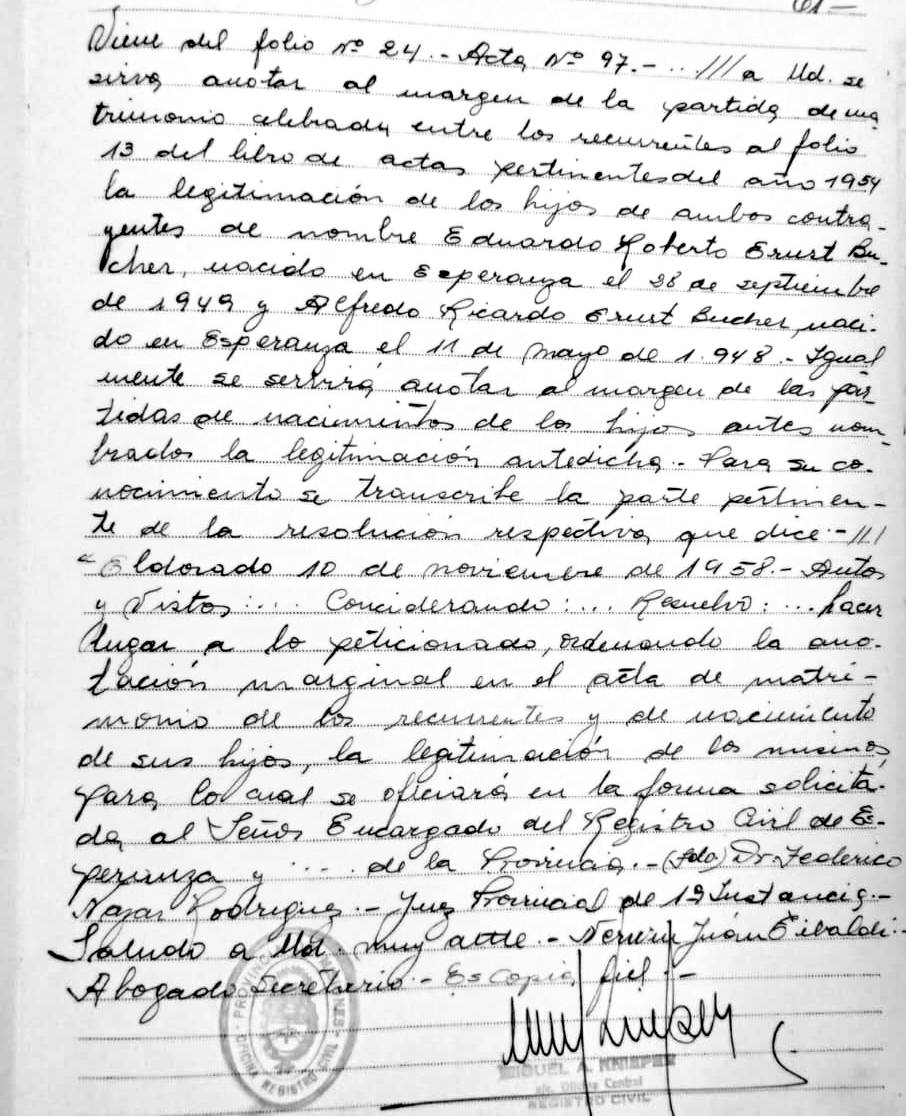 61.—
Viene del folio Nº 24.- Acta Nº 97.- ..///a Ud. se
sirva anotar al margen de la partida de ma
trimonio celebrada entre los recurrentes al folio
13 del libro de actas pertinentes del año 1954
la legitimación de los hijos de ambos contra-
yentes de nombre Eduardo Roberto Ernst Bu-
cher, nacido en Esperanza el 28 de septiembre
de 1949 y Alfredo Ricardo Ernst Bucher, naci-
do en Esperanza el 11 de Mayo de 1.948.- Igual
mente se servirá anotar al margen de las par
tidas de nacimientos de los hijos antes nom-
brados la legitimación antedicha.- Para su co-
nocimiento se transcribe la parte pertinen-
te de la resolución respectiva que dice:-///
"Eldorado 10 de noviembre de 1958.- Autos
y Vistos:... Conciderando:... Resuelvo:... hacer
lugar a lo peticionado, ordenando la ano-
tación marginal en el acta de matri-
monio de los recurrentes y de nacimiento
de sus hijos, la legitimación de los mismos
para lo cual se oficiará en la forma solicita-
da al Señor Encargado del Registro Civil de Es-
peranza y ... de la Provincia.- (fdo) Dr. Federico
Rodriguez.- Juez Provincial de 1ª Instancia.-
Saludo a Ud. muy atte.- Juán
Abogado Secretario.- Es Copia fiel.-
PROVINCIA DE MISIONES
OFICINA REGISTRO CIVIL
MIGUEL A. KNIEPER
a/c. Oficina Central
REGISTRO CIVIL